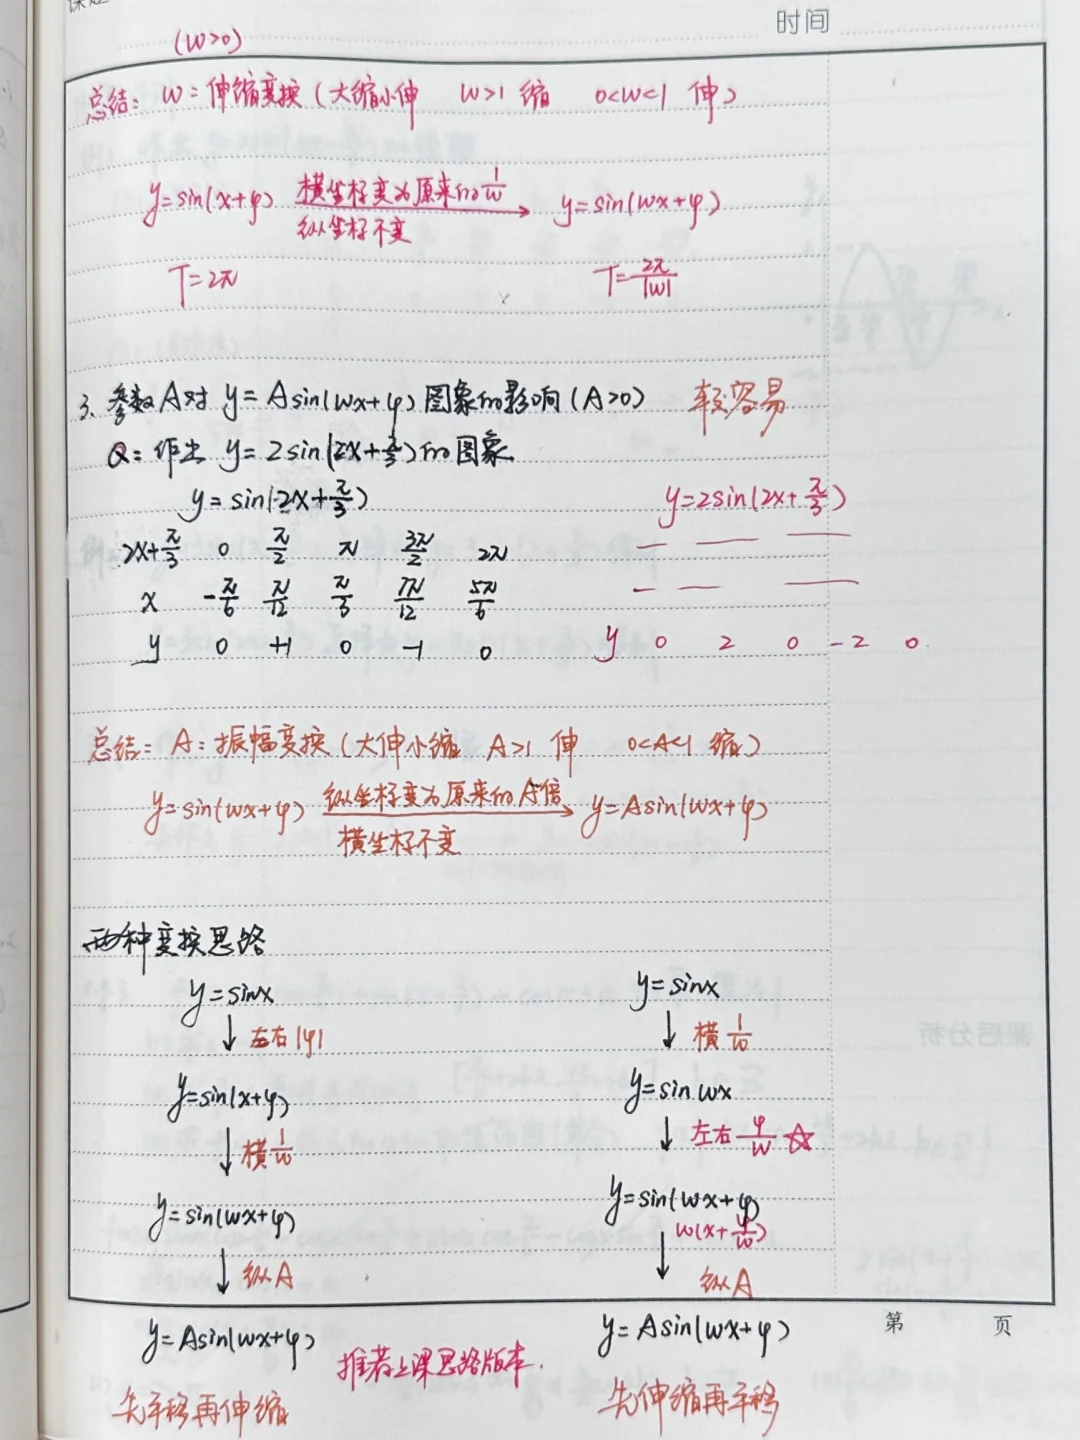 时间
(w>0)
总结: w: 伸缩变换 (大缩小伸 w>1 缩 0<w<1 伸)
y=sin(x+φ) 横坐标变为原来的1/w 纵坐标不变 → y=sin(wx+φ)
T=2π T=2π/|w|
3. 参数A对 y=Asin(wx+φ)图象的影响(A>0) 较容易
Q: 作出 y=2sin(2x+π/3)的图象
y=sin(2x+π/3) y=2sin(2x+π/3)
2x+π/3 0 π/2 π 3π/2 2π
x -π/6 π/12 π/3 7π/12 5π/6
y 0 +1 0 -1 0 y 0 2 0 -2 0
总结: A: 振幅变换 (大伸小缩 A>1 伸 0<A<1 缩)
y=sin(wx+φ) 纵坐标变为原来的A倍 横坐标不变 → y=Asin(wx+φ)
两种变换思路
y=sinx y=sinx
↓ 左右|φ| ↓ 横1/w
y=sin(x+φ) y=sinwx
↓ 横1/w ↓ 左右 φ/w ☆
y=sin(wx+φ) y=sin(wx+φ)
w(x+φ/w)
↓ 纵A ↓ 纵A
第 页
y=Asin(wx+φ) y=Asin(wx+φ)
推荐上课思路版本.
先平移再伸缩 先伸缩再平移
课后分析